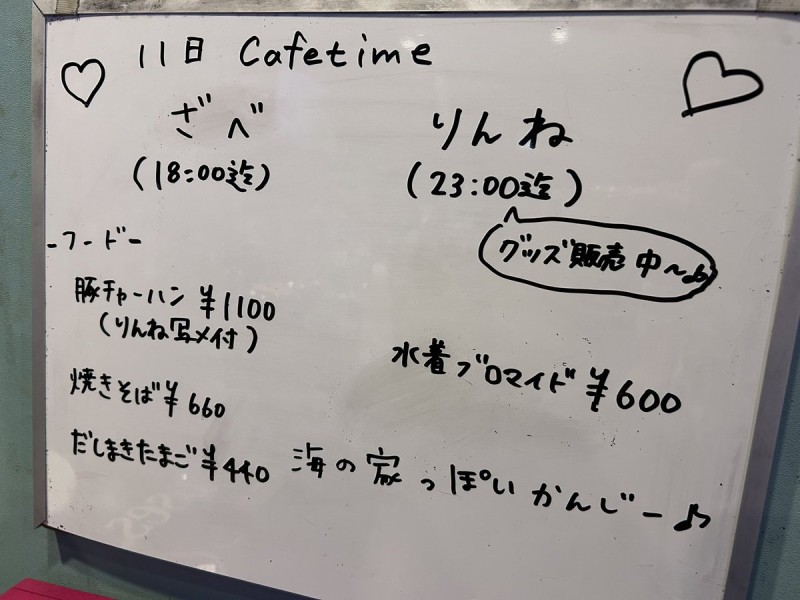 11日 Cafetime
ざべ
(18:00迄)
りんね
(23:00迄)
グッズ販売中～♪
-フード-
豚チャーハン ¥1100
(りんね写メ付)
焼きそば ¥660
だしまきたまご ¥440
水着ブロマイド ¥600
海の家っぽいかんじー♪